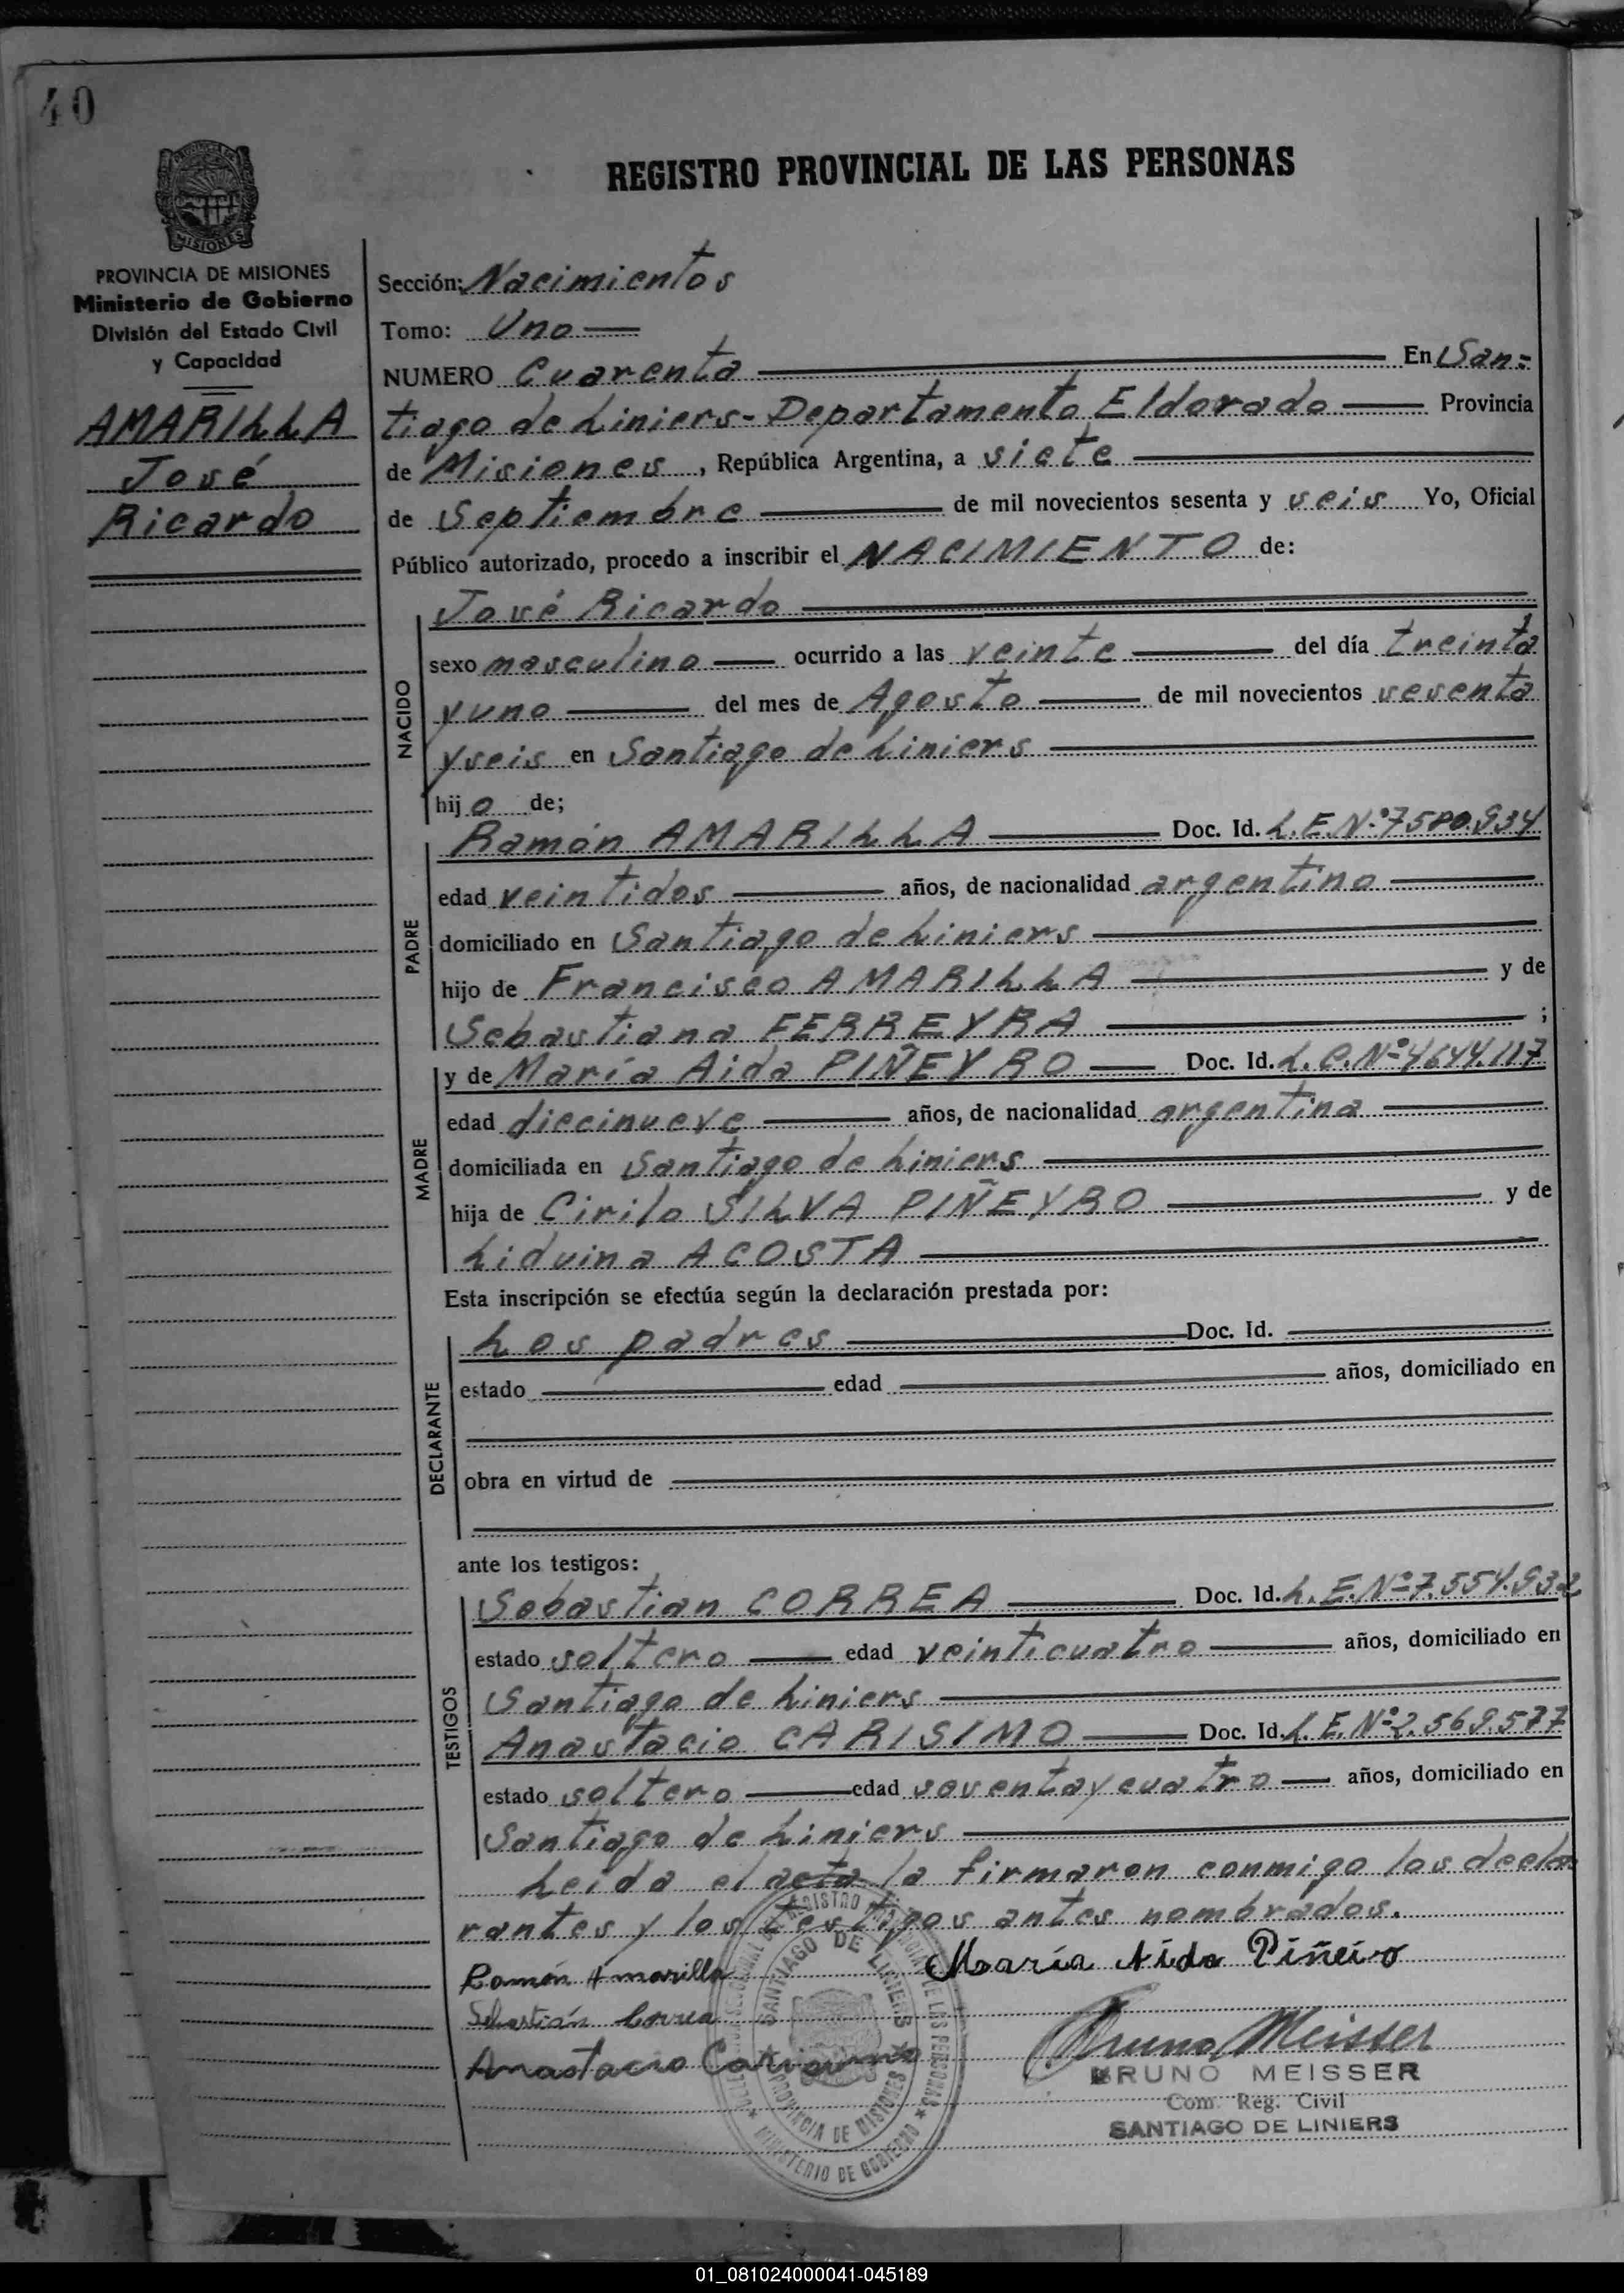 40
REGISTRO PROVINCIAL DE LAS PERSONAS
MISIONES
PROVINCIA DE MISIONES
Ministerio de Gobierno
División del Estado Civil
y Capacidad
AMARILLA
José
Ricardo
Sección: Nacimientos
Tomo: Uno
NUMERO Cuarenta En San=
tiago de Liniers-Departamento Eldorado Provincia
de Misiones, República Argentina, a siete
de Septiembre de mil novecientos sesenta y seis Yo, Oficial
Público autorizado, procedo a inscribir el NACIMIENTO de:
José Ricardo
NACIDO
sexo masculino ocurrido a las veinte del día treinta
y uno del mes de Agosto de mil novecientos sesenta
y seis en Santiago de Liniers
hijo de;
PADRE
Ramón AMARILLA Doc. Id. L.E.Nº 7580.934
edad veintidos años, de nacionalidad argentino
domiciliado en Santiago de Liniers
hijo de Francisco AMARILLA y de
Sebastiana FERREYRA ;
MADRE
y de María Aida PIÑEYRO Doc. Id. L.C.Nº 4644.117
edad diecinueve años, de nacionalidad argentina
domiciliada en Santiago de Liniers
hija de Cirilo SILVA PIÑEYRO y de
Liduina ACOSTA
Esta inscripción se efectúa según la declaración prestada por:
DECLARANTE
Los padres Doc. Id.
estado edad años, domiciliado en
obra en virtud de
ante los testigos:
TESTIGOS
Sebastian CORREA Doc. Id. L.E.Nº 7.554.932
estado soltero edad veinticuatro años, domiciliado en
Santiago de Liniers
Anastacio CARISIMO Doc. Id. L.E.Nº 2.569.577
estado soltero edad sesenta y cuatro años, domiciliado en
Santiago de Liniers
Leída el acta la firmaron conmigo los decla
rantes y los testigos antes nombrados.
Ramón Amarilla María Aida Piñeiro
Sebastián Correa
Anastacio Bruno Meisser
BRUNO MEISSER
Com. Reg. Civil
SANTIAGO DE LINIERS
SANTIAGO DE LINIERS
PROVINCIA DE MISIONES
MINISTERIO DE GOBIERNO
01_081024000041-045189